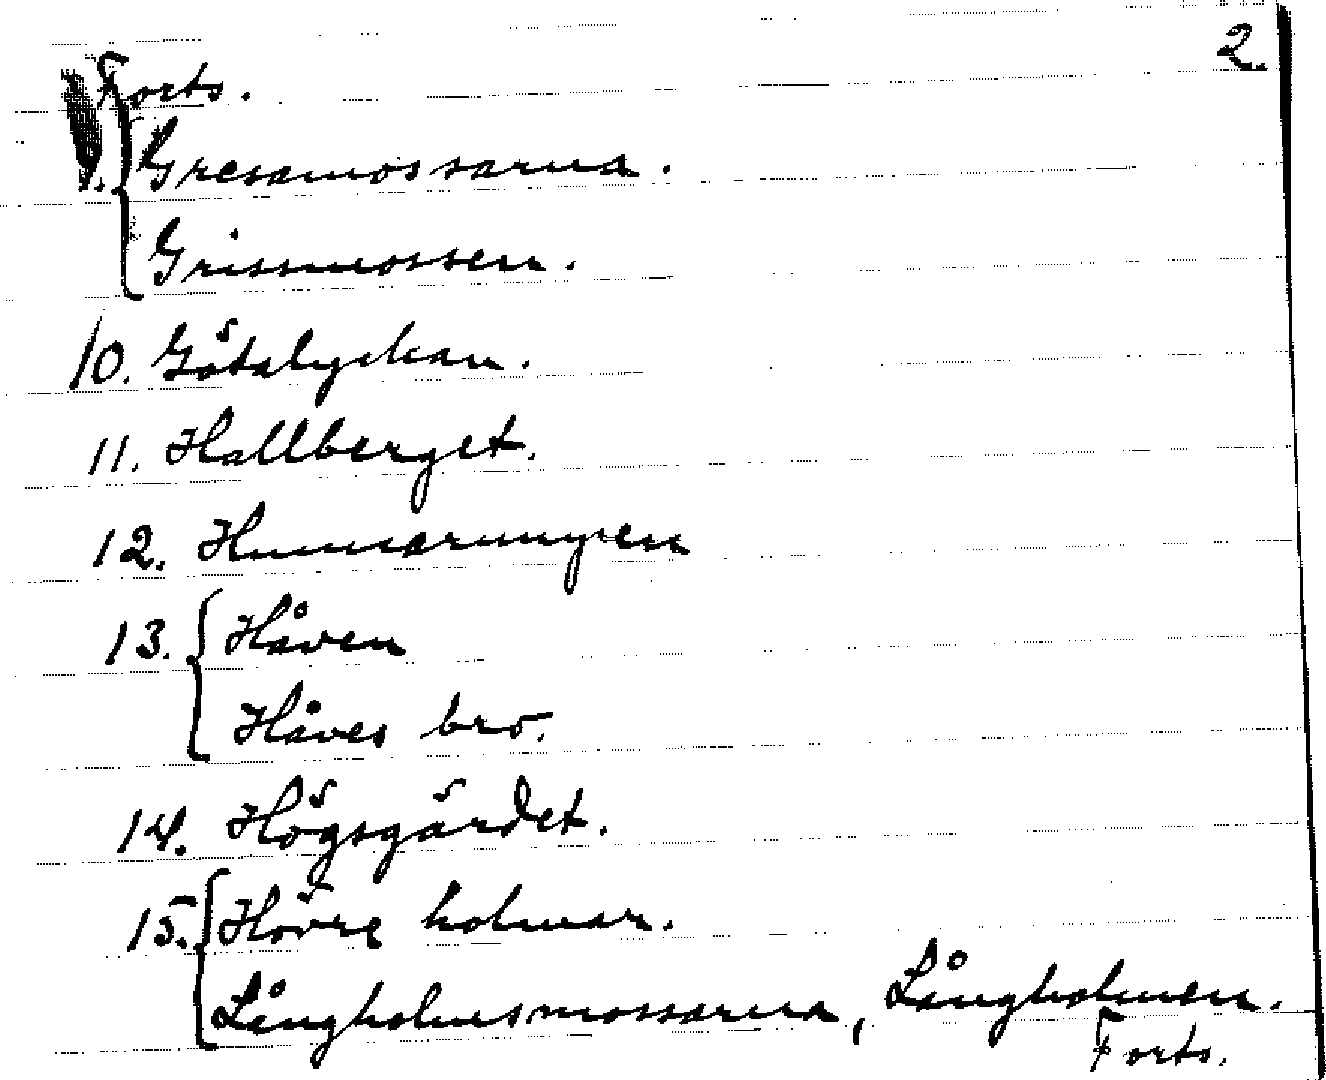 2.
Forts.
9. Gresamossarna.
Grismossen.
10. Götalyckan.
11. Hallberget.
12. Humlarumpen
13. Håven
Håves bro.
14. Högsgärdet.
15. Hövre holmar.
Långholmsmossarna, Långholmen.
Forts.